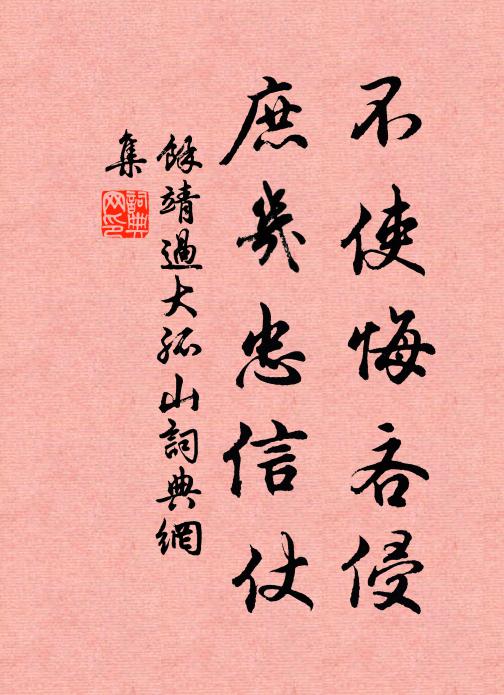 不使悔吝侵
庶幾忠信仗
餘靖過大孤山詞典網
集
詞典
网印